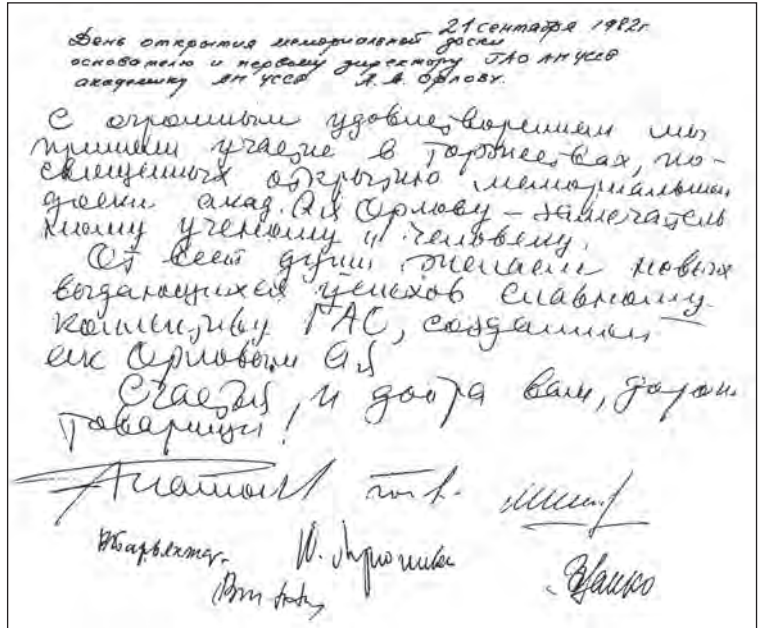 21 сентября 1982г.
День открытия мемориальной доски
основателю и первому директору ГАО АН УССР
академику АН УССР А. Я. Орлову.
С огромным удовлетворением мы
приняли участие в торжествах, по-
священных открытию мемориальной
доски акад. А Я Орлову – замечатель
ному ученому и человеку.
От всей души желаем новых
выдающихся успехов славному
коллективу ГАО, созданном
ак Орловым А Я
Счастья и добра вам, дорогие
товарищи!